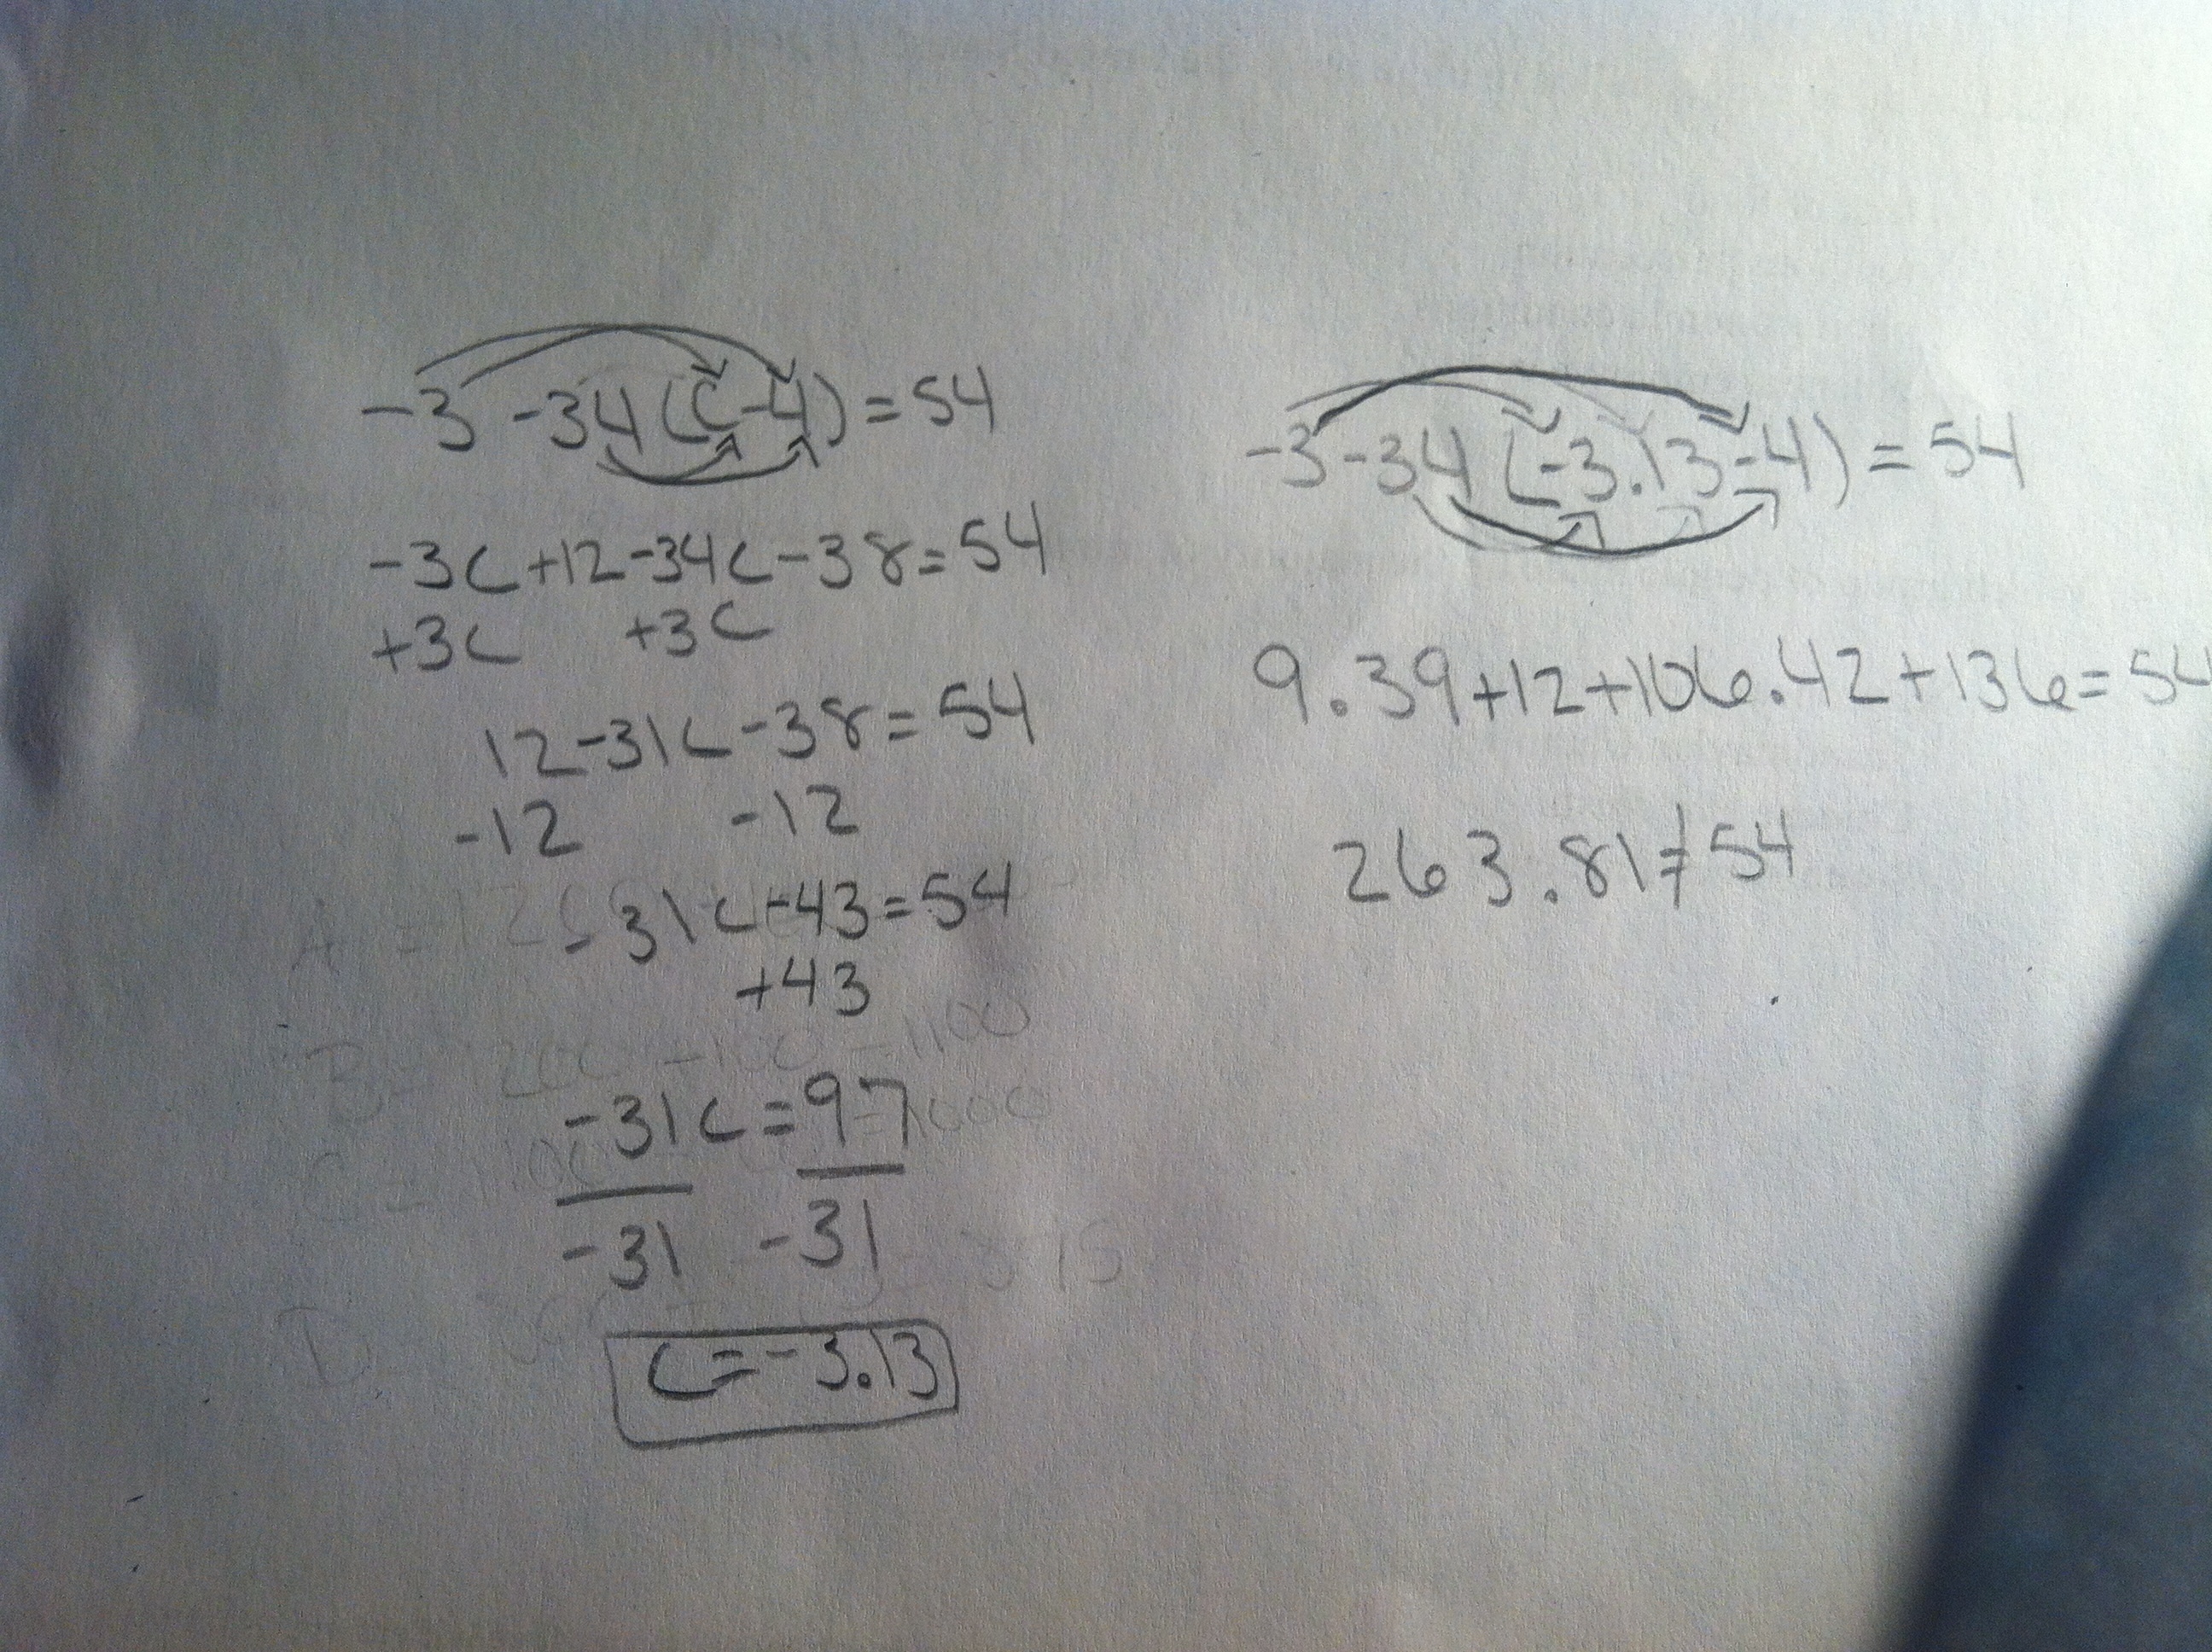 -3 -34(c-4)=54
-3c+12-34c-38=54
+3c +3c
12-31c-38=54
-12 -12
-31c-43=54
+43
-31c=97
-31 -31
c=-3.13
-3-34(-3.13-4)=54
9.39+12+106.42+136=54
263.81≠54